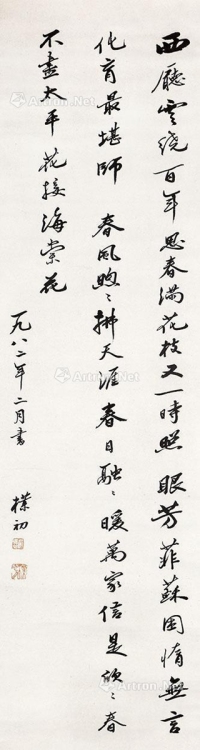 西廳雲繞百年思春滿花枝又一時照眼芳菲蘇困惰無言
化育最堪師 春風煦々拂天涯春日融々暖萬家信是欣々春
不盡太平花接海棠花
一九八二年二月書
樸初